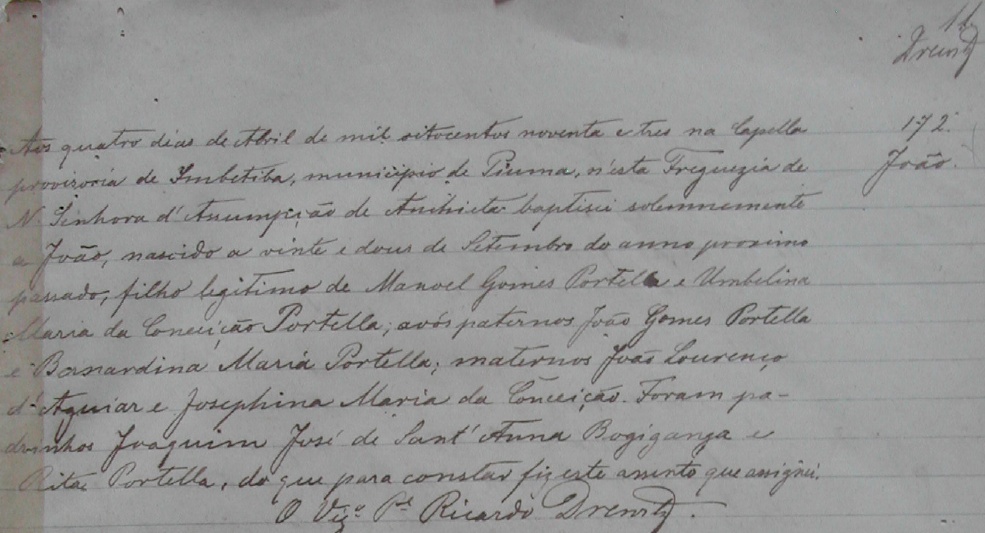 11
Drewsz
172.
João.
Aos quatro dias de Abril de mil oitocentos noventa e tres na Capella
provizoria de Imbetiba, municipio de Piuma, n'esta Freguezia de
N. Senhora d'Anumpção de Anchieta baptisei solemnemente
a João, nascido a vinte e dous de Setembro do anno proximo
passado, filho legitimo de Manoel Gomes Portella e Umbelina
Maria da Conceição Portella; avós paternos João Gomes Portella
e Bernardina Maria Portella; maternos João Lourenço
d'Aguiar e Josephina Maria da Conceição. Foram pa-
drinhos Joaquim José de Sant'Anna Bogiganga e
Rita Portella, do que para constar fiz este assento que assignei.
O Vigº Pe Ricardo